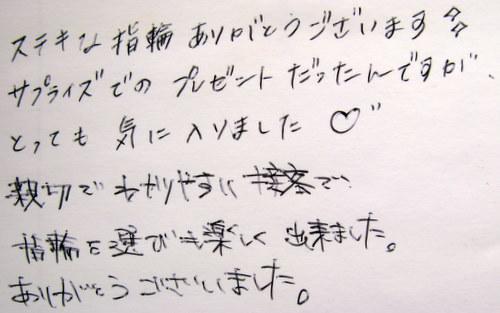 ステキな指輪ありがとうございます♪
サプライズでのプレゼントだったんですが、
とっても気に入りました♡"
親切でわかりやすい接客で
指輪を選びも楽しく出来ました。
ありがとうございました。